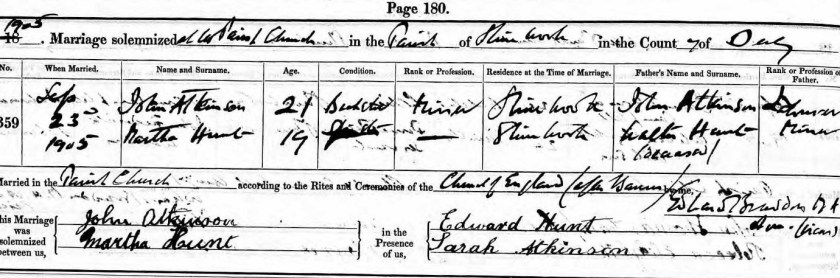 Page 180.
1905. Marriage solemnized at the Parish Church in the Parish of Shirebrook in the County of Derby
No. When Married. Name and Surname. Age. Condition. Rank or Profession. Residence at the Time of Marriage. Father's Name and Surname. Rank or Profession of Father.
359 Sep 23 1905 John Atkinson 21 Bachelor Miner Shirebrook John Atkinson Miner
Martha Hunt 19 Spinster — Shirebrook Walter Hunt (deceased) Miner
Married in the Parish Church according to the Rites and Ceremonies of the Church of England (after Banns) by me,
This Marriage was solemnized between us, John Atkinson Martha Hunt in the Presence of us, Edward Hunt Sarah Atkinson (Vicar)